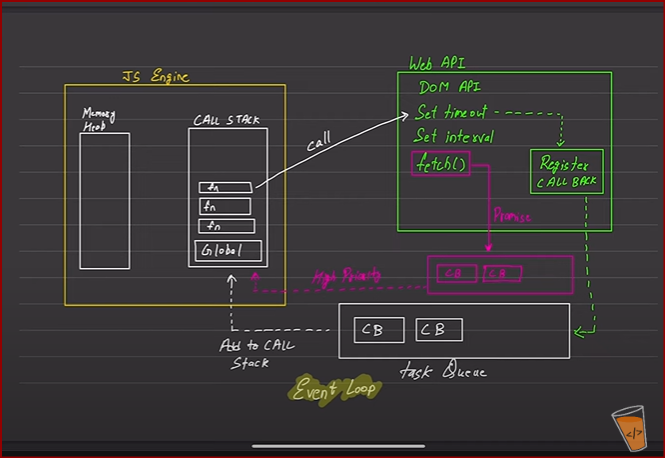 JS Engine
Memory
Heap
CALL STACK
fn
fn
fn
Global
call
Web API
DOM API
Set timeout
Set interval
fetch()
Register
CALL BACK
Promise
CB CB
High Priority
CB CB
Add to CALL
Stack
task Queue
Event Loop
</>